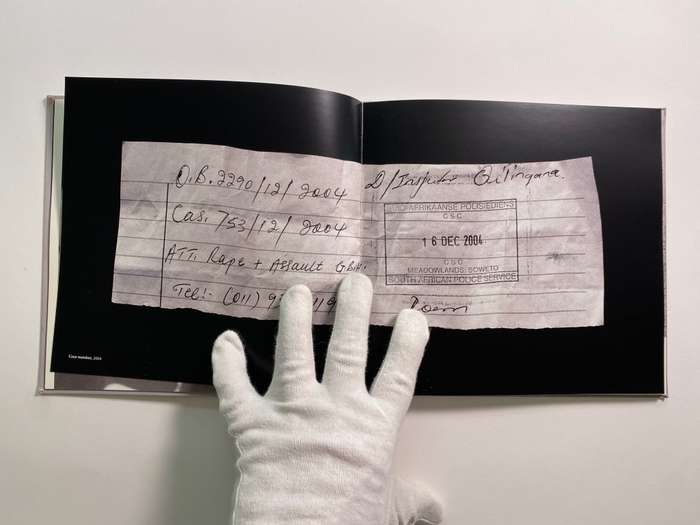 O.B. 2290/12/2004
D/Inspector
Cas. 753/12/2004
ATT. Rape + Assault G.B.H.
Tel:- (011) 9
SUID-AFRIKAANSE POLISIEDIENS
C S C
16 DEC 2004
C S C
MEADOWLANDS: SOWETO
SOUTH AFRICAN POLICE SERVICE
Case number, 2004